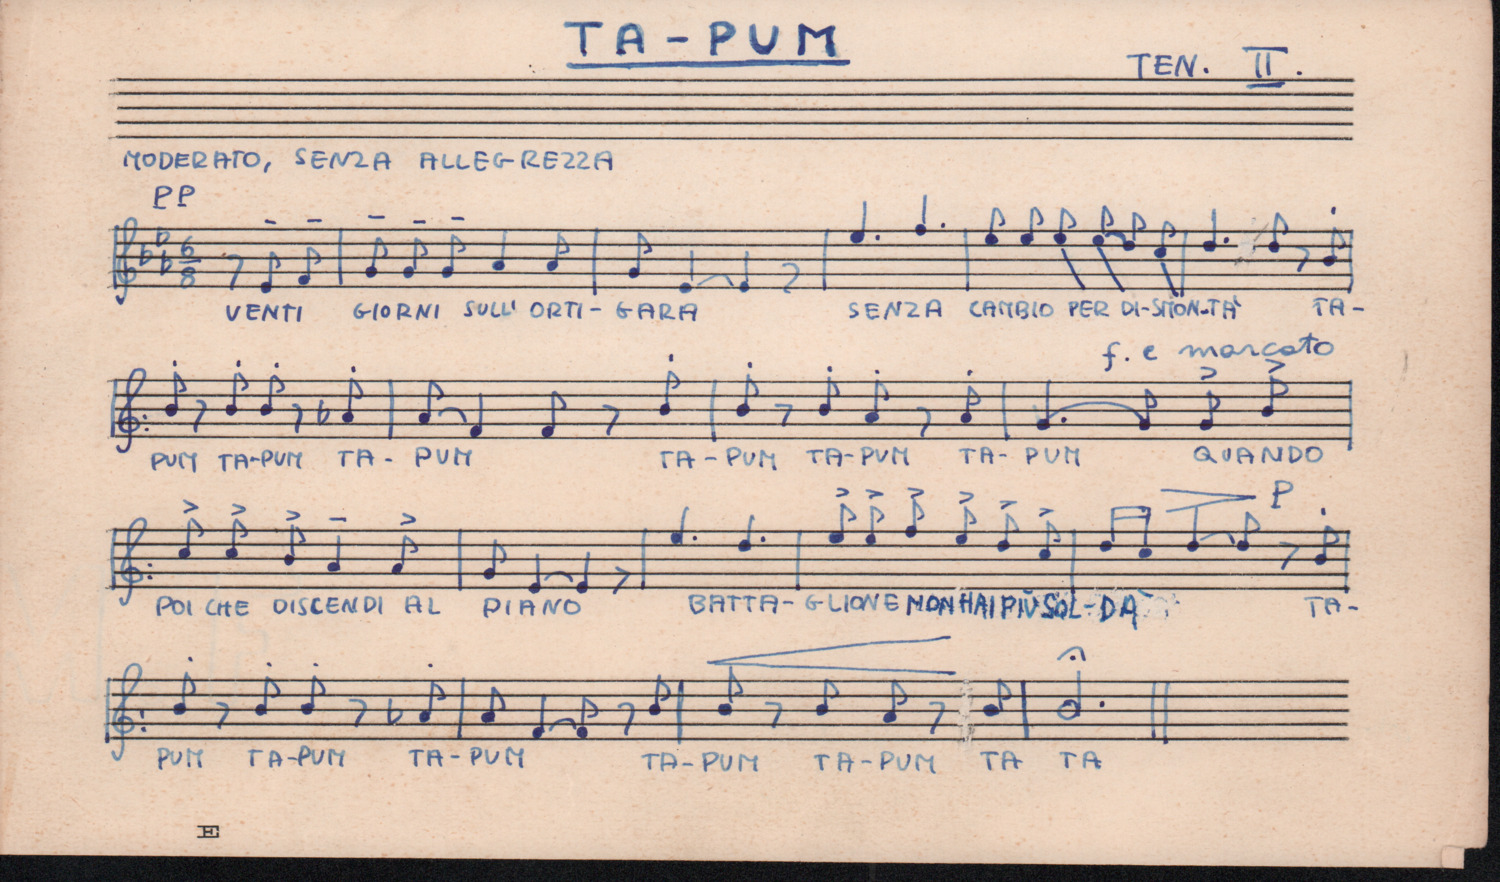 TA-PUM
TEN. II.
MODERATO, SENZA ALLEGREZZA
PP
6
8
VENTI GIORNI SULL' ORTI-GARA SENZA CAMBIO PER DI-SMON-TÀ TA-
f. e marcato
PUM TA-PUM TA-PUM TA-PUM TA-PUM TA-PUM QUANDO
P
POI CHE DISCENDI AL PIANO BATTA-GLIONE NON HAI PIÙ SOL-DÀ TA-
PUM TA-PUM TA-PUM TA-PUM TA-PUM TA TA
E